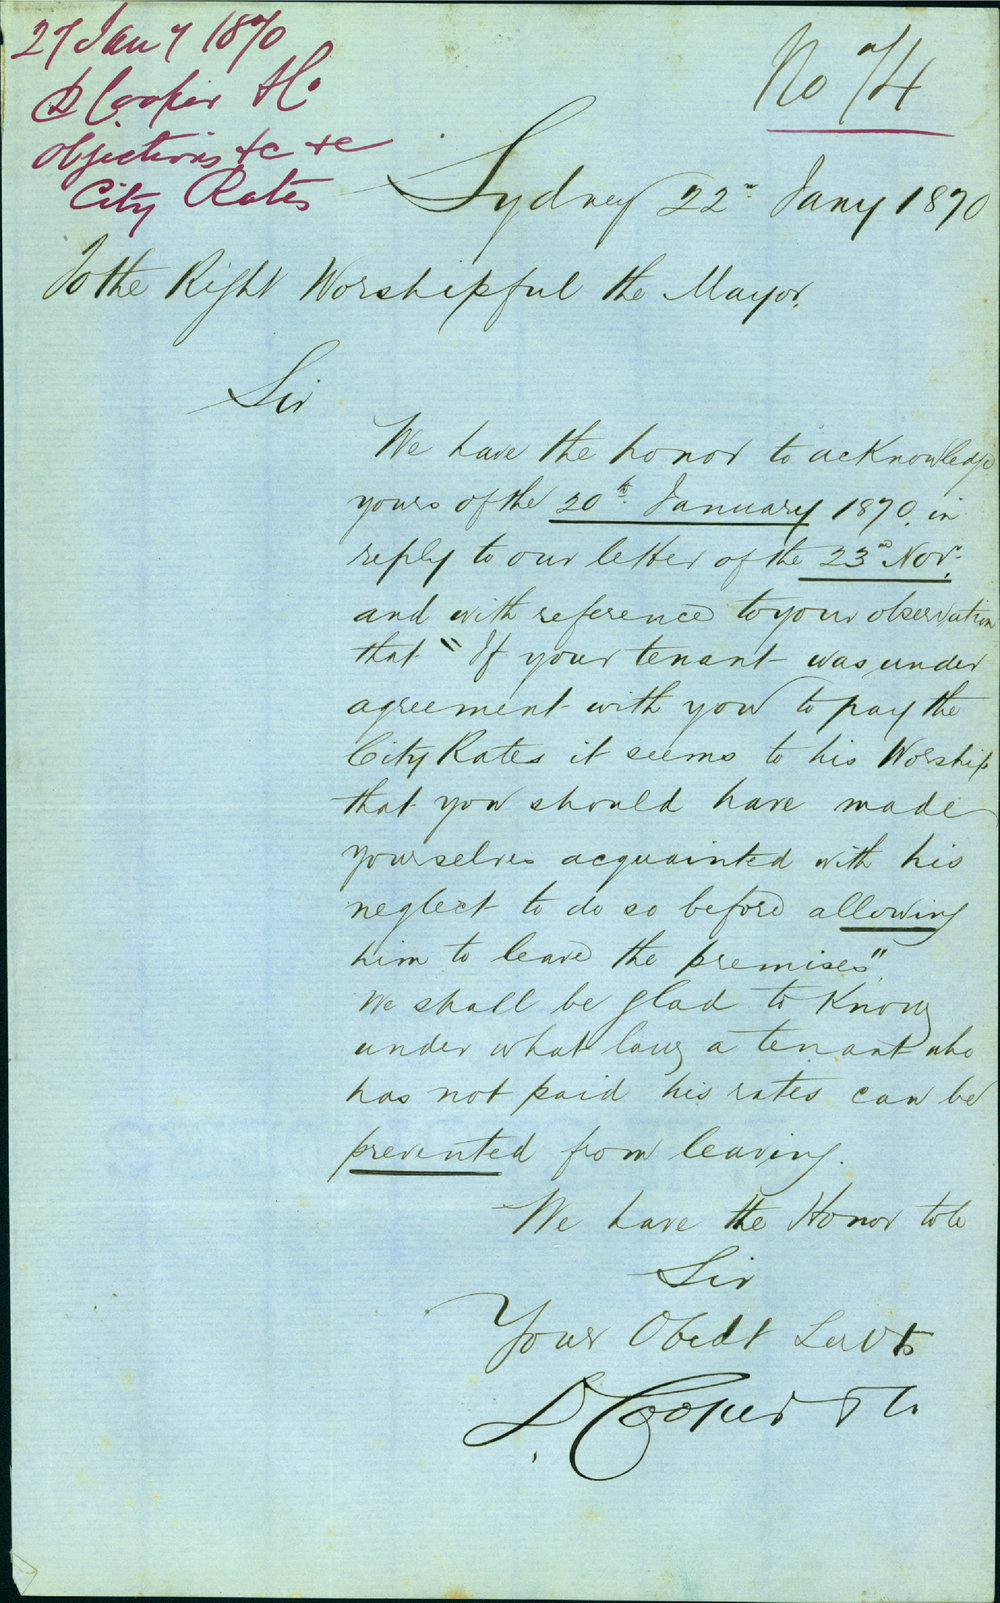 27 Jany 1870
D Cooper & Co
objections &c &c
City Rates
No 74
Sydney 22nd Jany 1870
To the Right Worshipful the Mayor.
Sir
We have the honor to acknowledge
yours of the 20th January 1870, in
reply to our letter of the 23rd Novr.
and with reference to your observation
that "If your tenant was under
agreement with you to pay the
City Rates it seems to his Worship
that you should have made
yourselves acquainted with his
neglect to do so before allowing
him to leave the premises".
We shall be glad to know
under what law a tenant who
has not paid his rates can be
prevented from leaving.
We have the Honor to be
Sir
Your Obedt Servts
D Cooper & Co